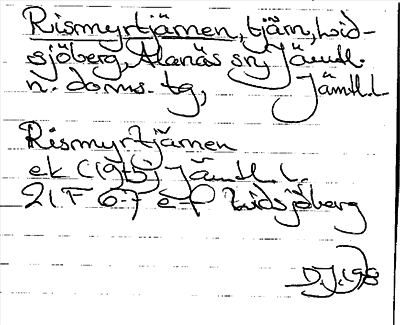 Rismyrtjärnen, tjärn, Lid-
sjöberg, Alanäs sn, Jämtl.
n. doms. tg, Jämtl. l.
Rismyrtjärnen
ek (1975) Jämtl. l.
21F 6-7 e-f Lidsjöberg